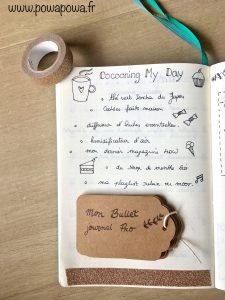 www.powapowa.fr
Cocooning My Day
thé vert Sencha du Japon
Cookies faits maison
diffuseur d'huiles essentielles
humidificateur d'air
mon dernier magazine
du sirop de menthe bio
ma playlist relax ou
Mon Bullet
journal Pao